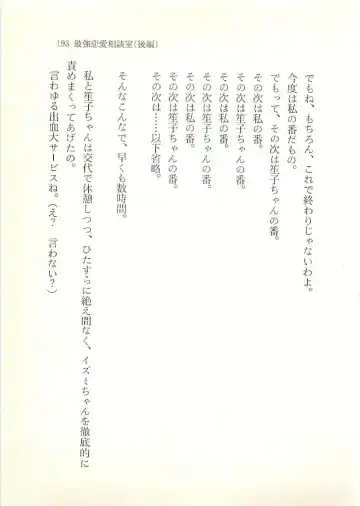 193 最強恋愛相談室(後編)
でもね、もちろん、これで終わりじゃないわよ。
今度は私の番だもの。
でもって、その次は笙子ちゃんの番。
その次は私の番。
その次は笙子ちゃんの番。
その次は私の番。
その次は笙子ちゃんの番。
その次は私の番。
その次は笙子ちゃんの番。
その次は……以下省略。
そんなこんなで、早くも数時間。
私と笙子ちゃんは交代で休憩しつつ、ひたすらに絶え間なく、イズミちゃんを徹底的に
責めまくってあげたの。
言わゆる出血大サービスね。(え? 言わない?)